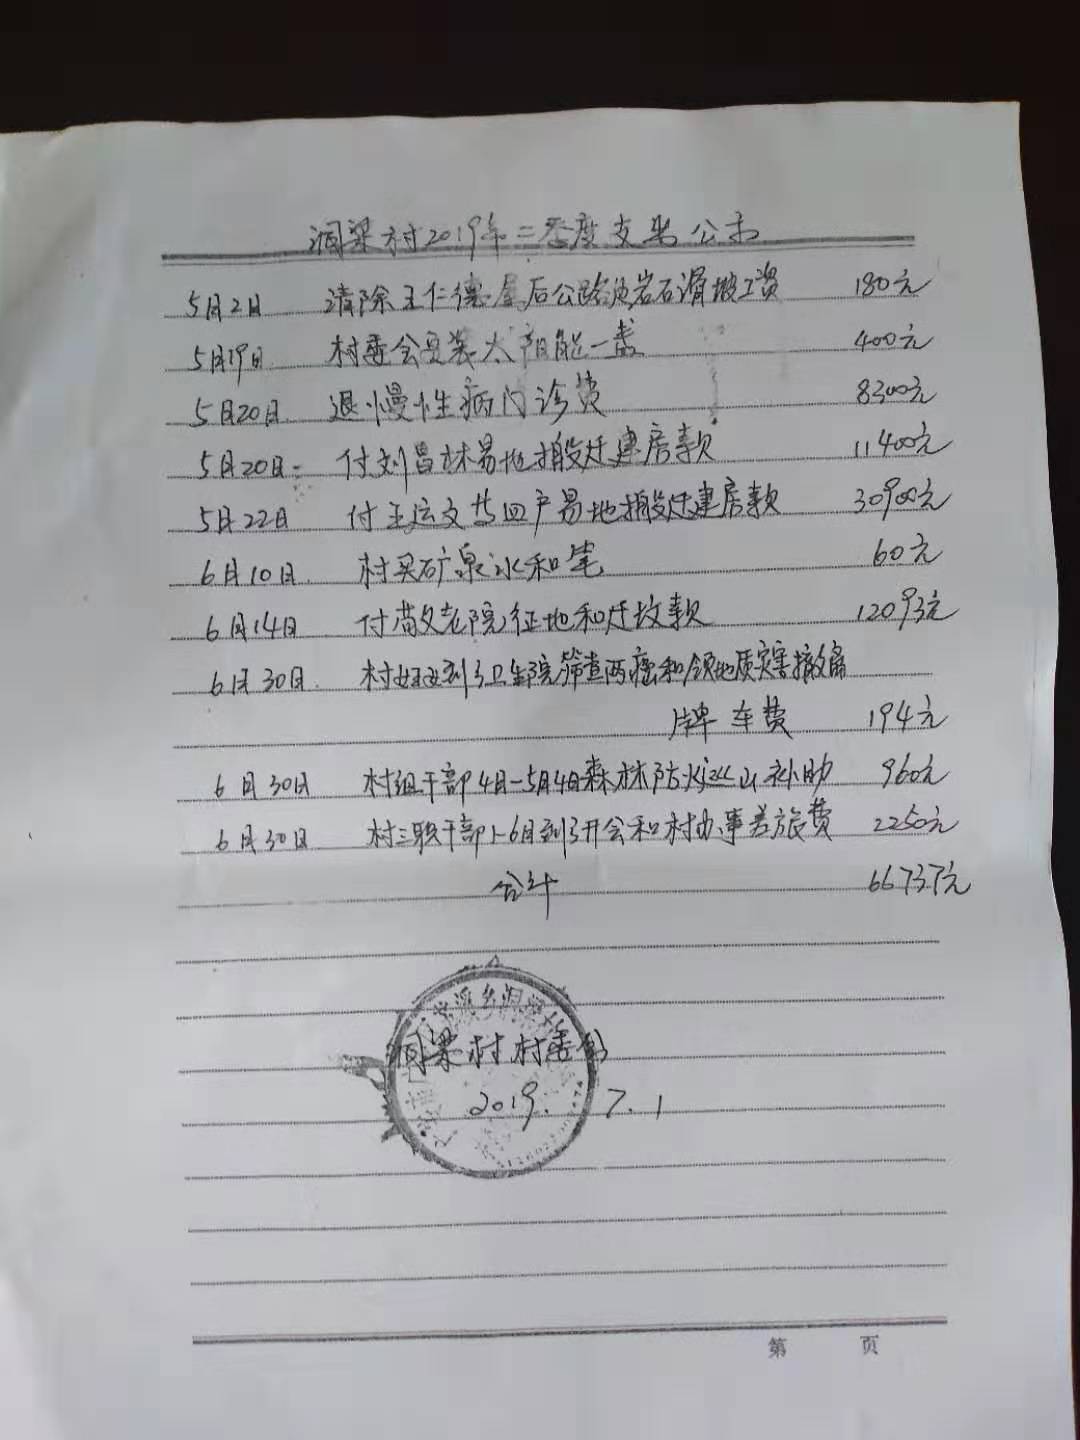 洞梁村2019年二季度支出公示
5月2日 清除王仁德屋后公路边岩石滑坡工资 180元
5月19日 村委会安装太阳能一盏 400元
5月20日 退慢性病门诊费 8300元
5月20日 付刘昌林易地搬迁建房款 11400元
5月22日 付王运文等四户易地搬迁建房款 30900元
6月10日 村买矿泉水和笔 60元
6月14日 付敬老院征地和迁坟款 12093元
6月30日 村妇女到乡卫生院筛查两癌和领地质灾害撤离
牌车费 194元
6月30日 村组干部4日-5月4日森林防火巡山补助 960元
6月30日 村三职干部1-6月到乡开会和村办事差旅费 2250元
合计 66737元
洞梁村村委会
2019. 7. 1
第 页